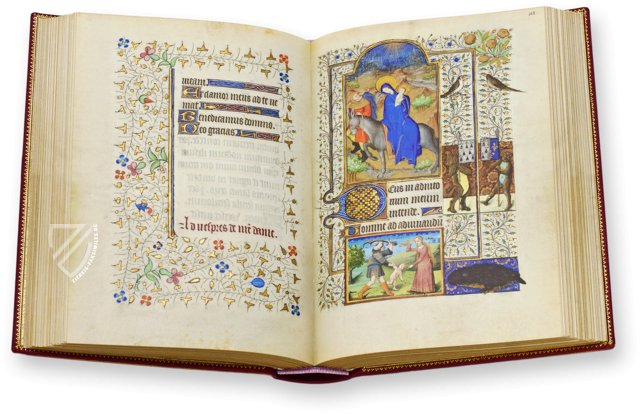 meam
Et clamor meus ad te ue
niat
Benedicamus domino.
Deo gracias
A vespres de nre dame.
Deus in adiuto
rium meum
intende.
Domine ad adiuuandū